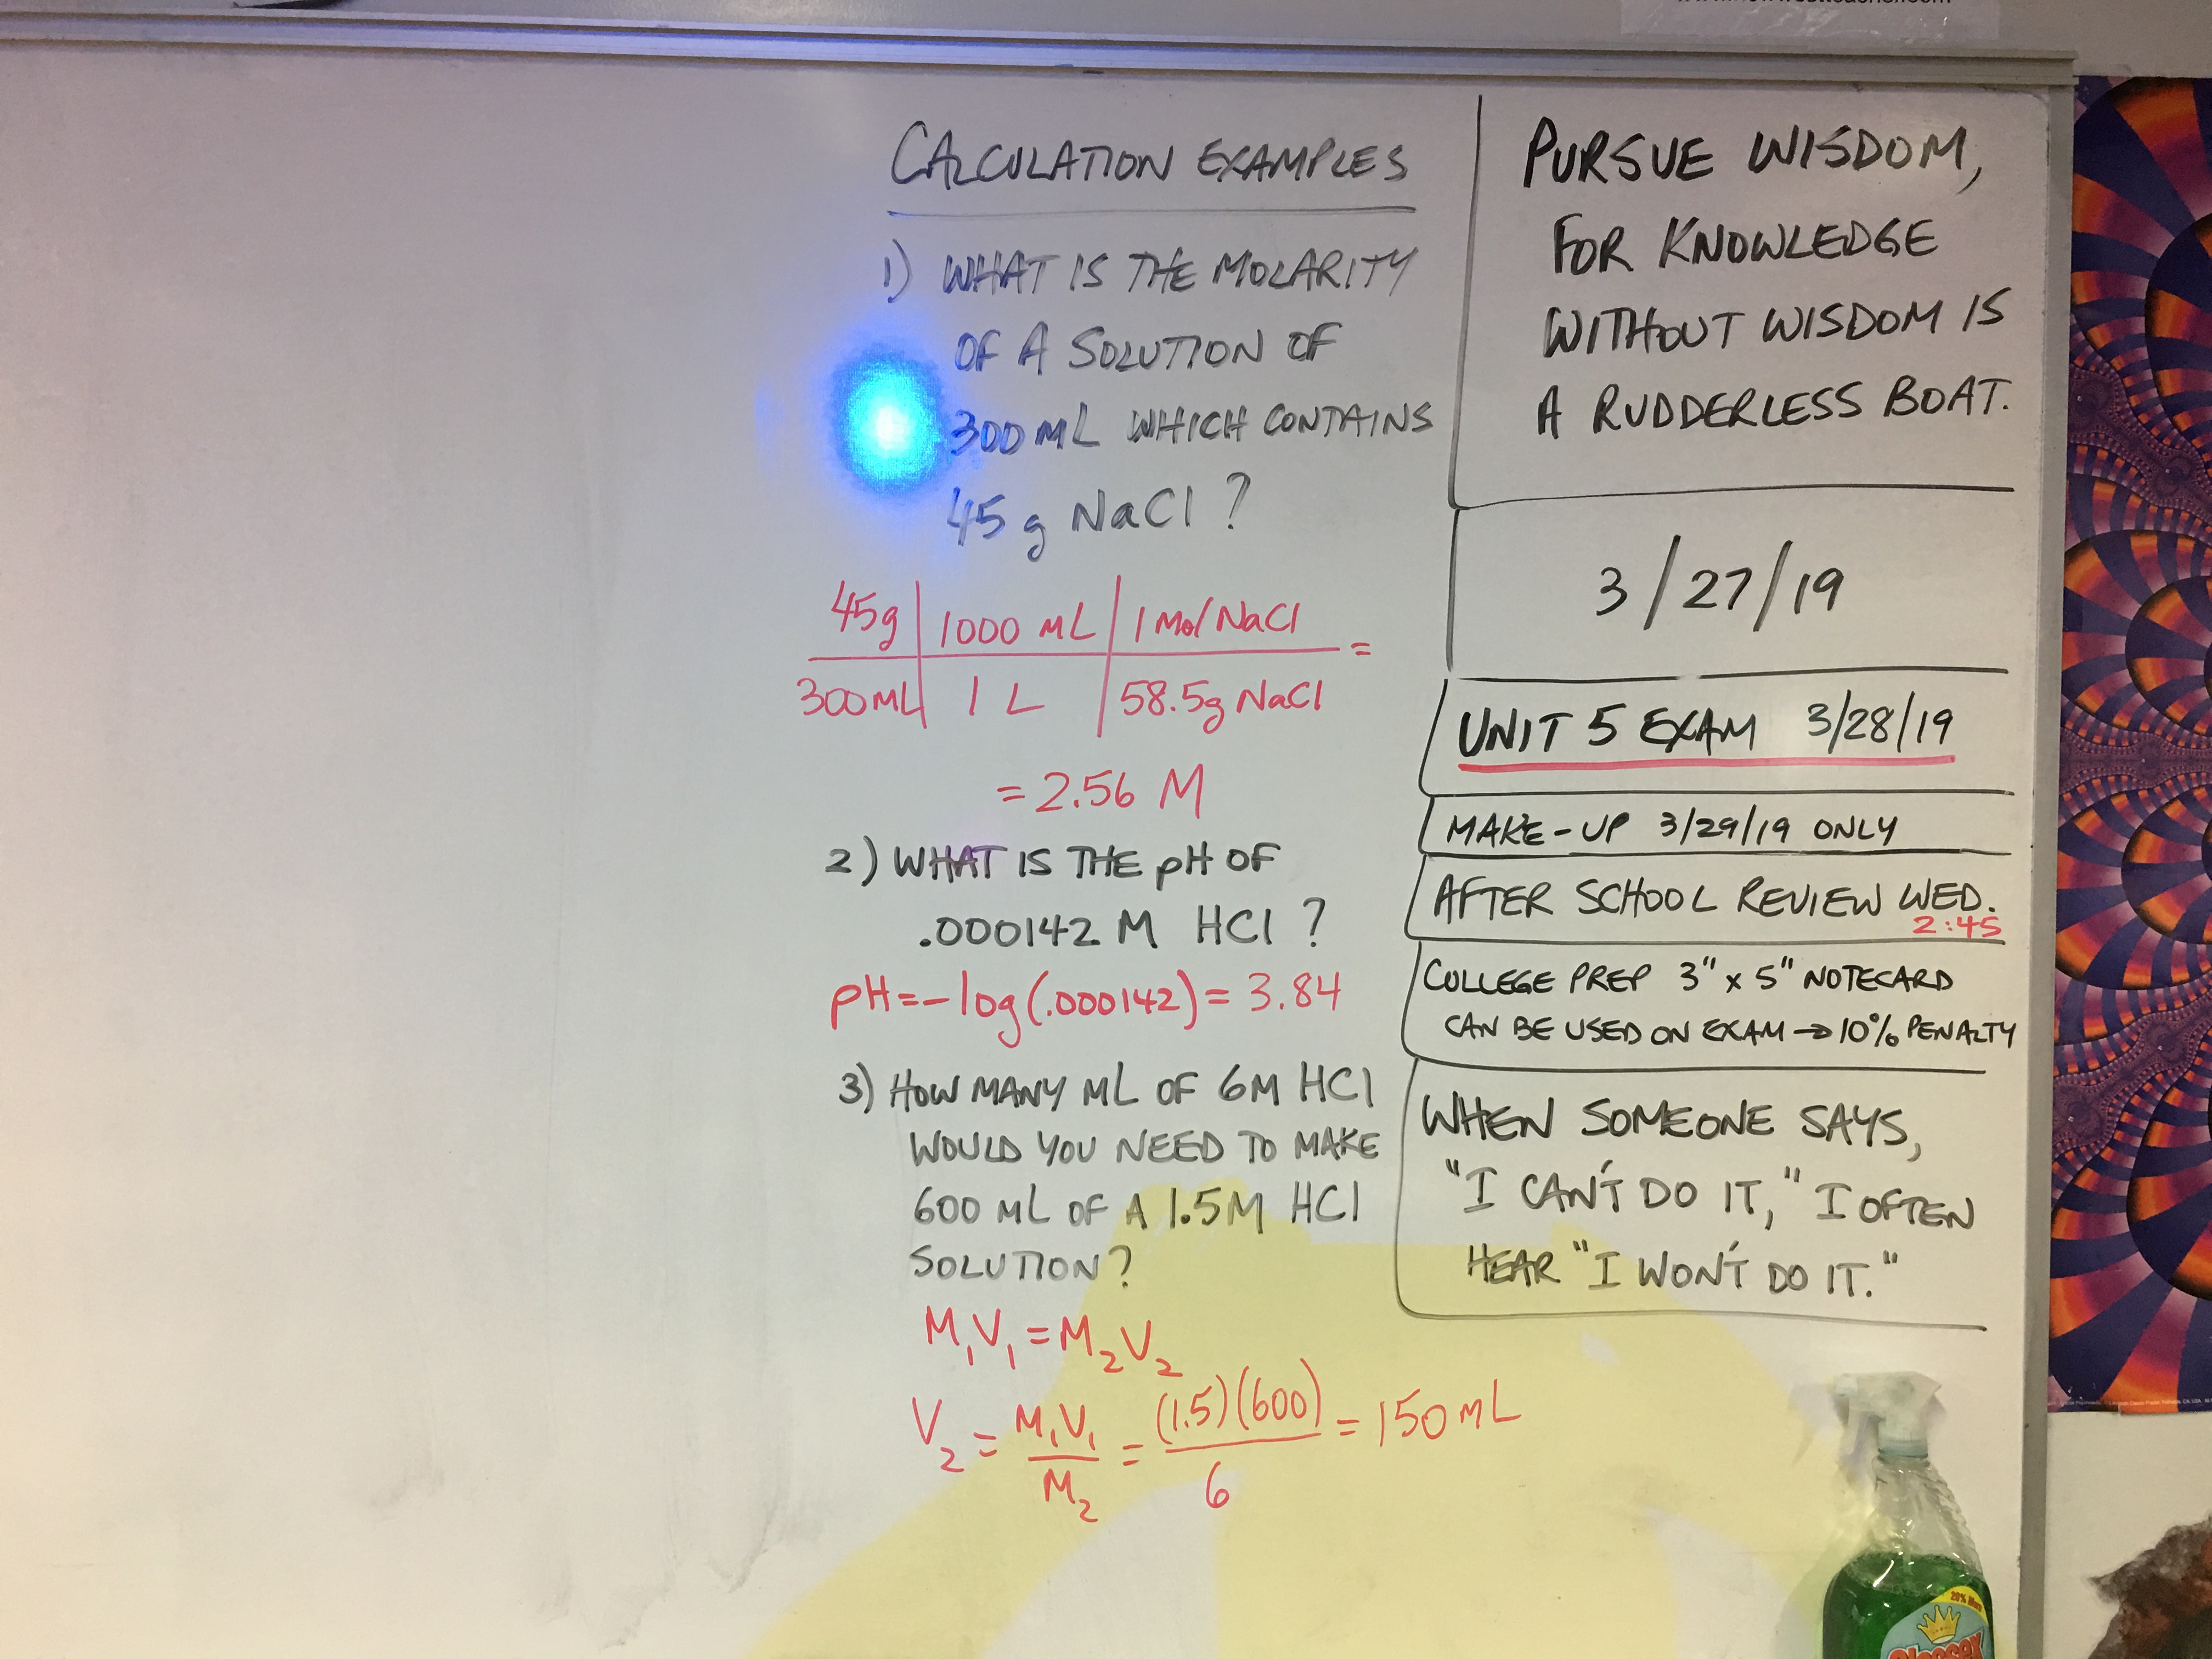 CALCULATION EXAMPLES
1) WHAT IS THE MOLARITY
OF A SOLUTION OF
300 ML WHICH CONTAINS
45 g NaCl ?
45g | 1000 ML | 1 Mol NaCl =
300 ML | 1 L | 58.5g NaCl
= 2.56 M
2) WHAT IS THE pH OF
.000142 M HCl ?
pH = - log (.000142) = 3.84
3) HOW MANY ML OF 6M HCl
WOULD YOU NEED TO MAKE
600 ML OF A 1.5M HCl
SOLUTION?
M₁V₁ = M₂V₂
V₂ = M₁V₁/M₂ = (1.5)(600)/6 = 150 ML
PURSUE WISDOM,
FOR KNOWLEDGE
WITHOUT WISDOM IS
A RUDDERLESS BOAT.
3/27/19
UNIT 5 EXAM 3/28/19
MAKE-UP 3/29/19 ONLY
AFTER SCHOOL REVIEW WED.
2:45
COLLEGE PREP 3" x 5" NOTECARD
CAN BE USED ON EXAM → 10% PENALTY
WHEN SOMEONE SAYS,
"I CAN'T DO IT," I OFTEN
HEAR "I WON'T DO IT."
20% More